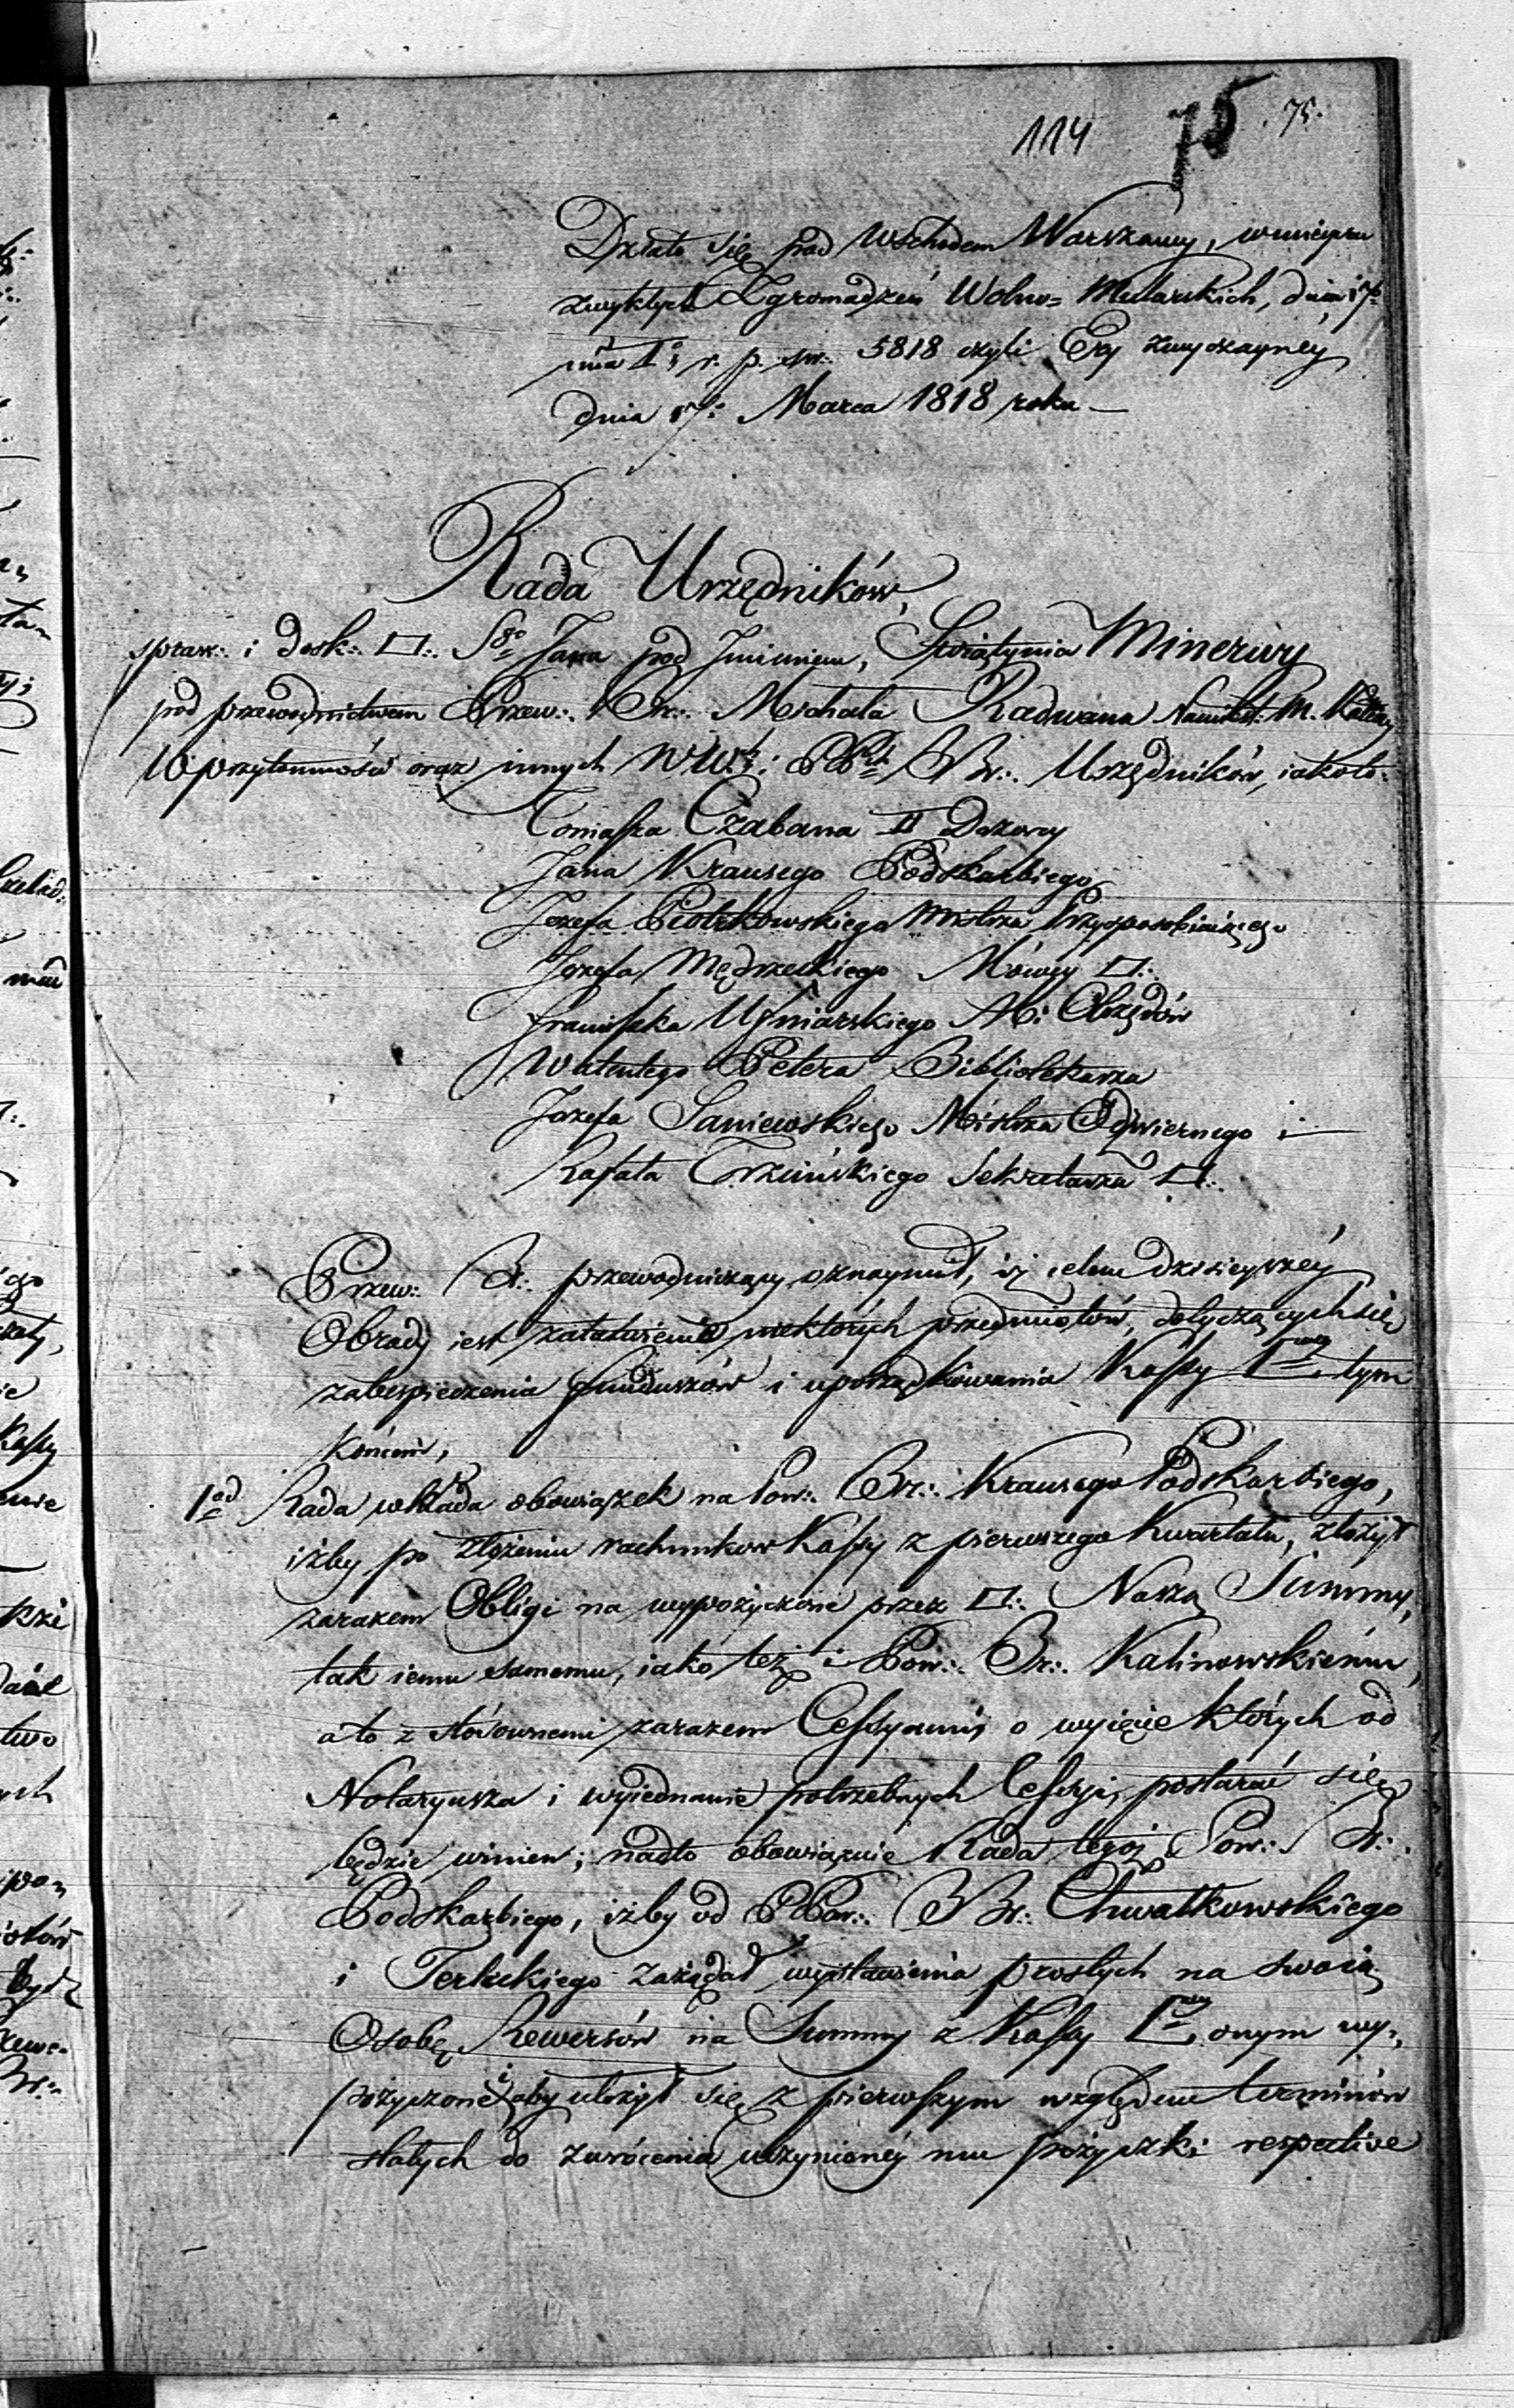 114 75 75.
Działo się pod Wschodem Warszawy, w mieyscu
zwykłych Zgromadzeń Wolno= Mularskich, dnia 17.
mca I; r. p. sw. 5818 czyli Ery zwyczayney
dnia 17. Marca 1818 roku —
Rada Urzędników,
spraw:. i dosk:. □:. Sgo Jana pod Imieniem, Swiątynia Minerwy
pod przewodnictwem Przew:. Br:. Michała Radwana Namiest: M. Katedry
W przytomności oraz innych WWch: PPch BBr:. Urzędników, iakoto:
Tomasza Czabana II Dozorcy
Jana Krausego Podskarbiego
Jozefa Piotrkowskiego Mistrza Przysposobiaiącego
Jozefa Mędrzeckiego Mówcy □:.
Franciszka Uyniarskiego M: Obrzędów
Walentego Petera Bibliotekarza
Jozefa Saniewskiego Mistrza Odźwiernego i —
Rafała Trzcińskiego Sekretarza □:.
Przew:. Br:. przewodniczący oznaymił, iż celem dzisieyszéy
Obrady iest załatwienie niektórych przedmiotów, dotyczących się
zabespieczenia funduszów i uporządkowania Kassy tym
końcem,
1od Rada wkłada obowiązek na Pow:. Br:. Krausego Podskarbiego,
iżby po złożeniu rachunkow Kassy z pierwszego Kwartału, złożył
zarazem Obligi na wypożyczone przez □:. Naszą Summy,
tak iemu samemu, iako też i Pow:. Br:. Kalinowskiému,
a to z stósownemi zarazem Cessyami, o wyięcie których od
Notaryusza i wyiednanie potrzebnych Cessyi, postarać się
będzie winien; nadto obowiązuie Rada tegoż Pow:. Br:.
Podskarbiego, iżby od PPow:. BBr:. Chwałkowskiego
i Terleckiego zażądał wystawienia prostych na swoią
Osobę Rewersów na Summy z Kassy onym wy=
pożyczone, i aby ułożył się z pierwszym względem terminów
stałych do zwrócenia uczynionéy mu pożyczki respective